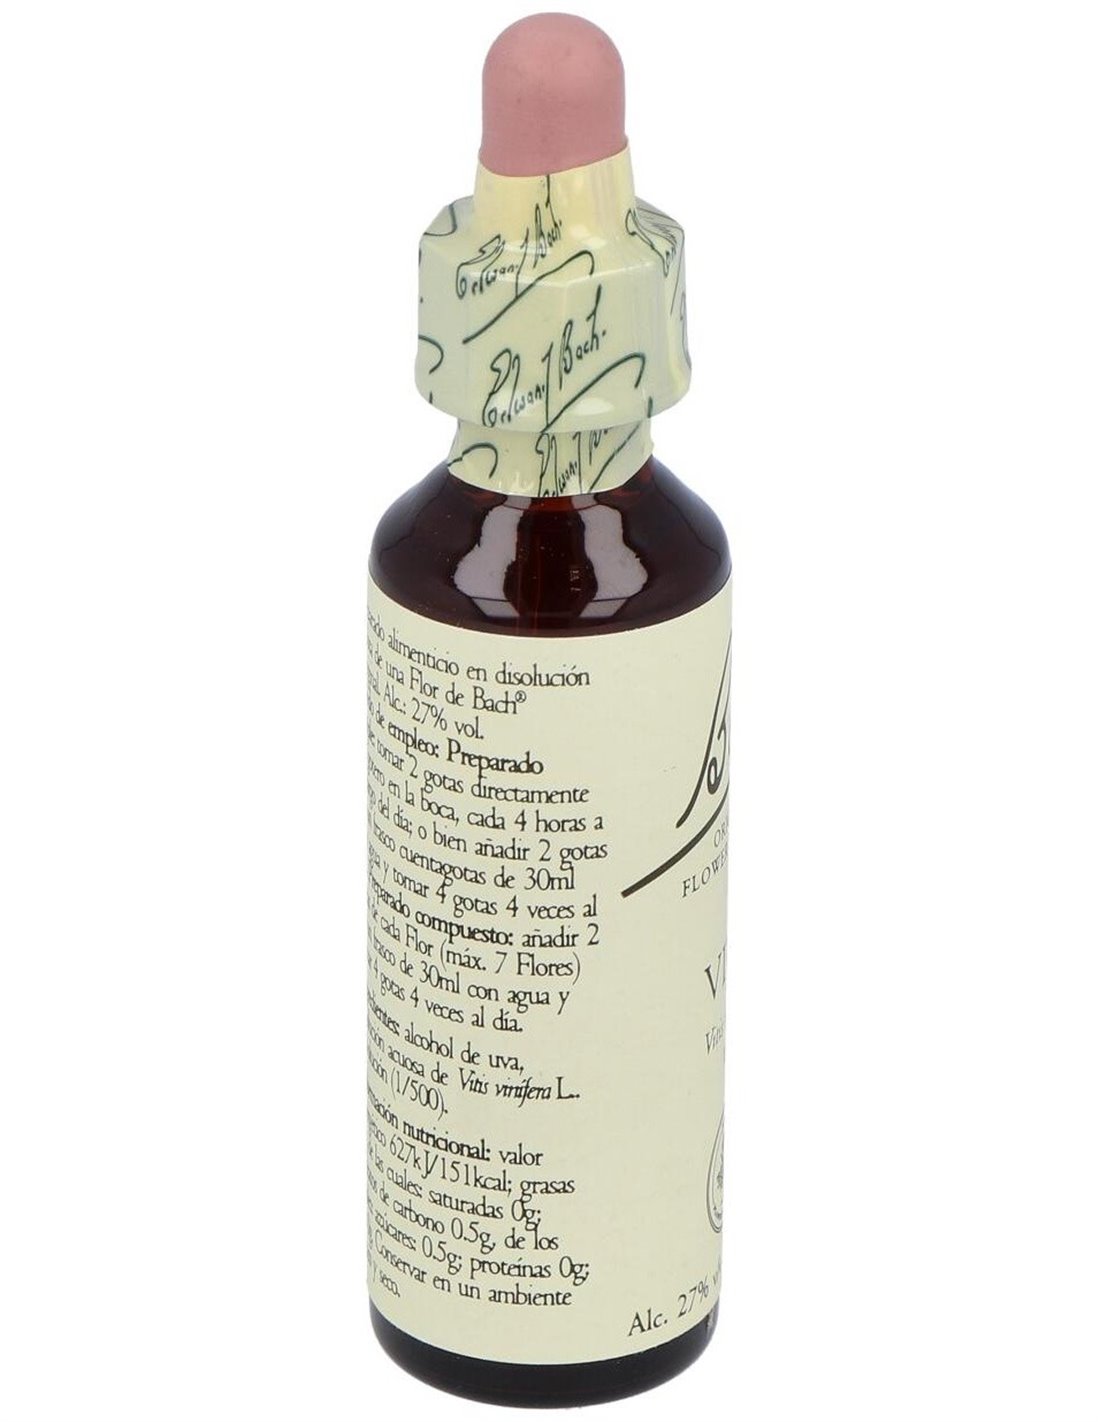 Edward Bach.
Edward Bach.
alimenticio en disolución
de una Flor de Bach®
Alc.: 27% vol.
de empleo: Preparado
tomar 2 gotas directamente
en la boca, cada 4 horas a
del día; o bien añadir 2 gotas
frasco cuentagotas de 30ml
y tomar 4 gotas 4 veces al
Preparado compuesto: añadir 2
de cada Flor (máx. 7 Flores)
frasco de 30ml con agua y
4 gotas 4 veces al día.
alcohol de uva,
acuosa de Vitis vinífera L..
(1/500).
nutricional: valor
627kJ/151kcal; grasas
de las cuales: saturadas 0g;
de carbono 0.5g, de los
azúcares: 0.5g; proteínas 0g;
Conservar en un ambiente
y seco.
Alc. 27%